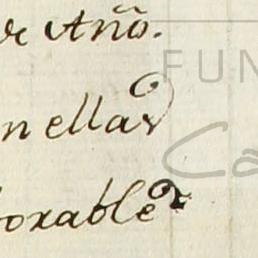 de Año.
FUN
n ellas
Ca
orable